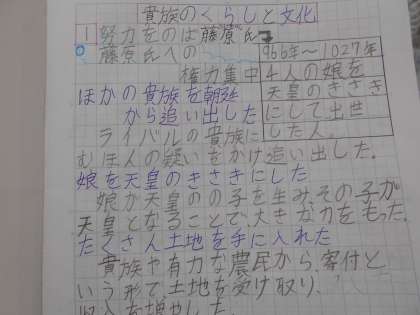 貴族のくらしと文化
1 努力をのは藤原氏
藤原氏への
権力集中
966年～1027年
4人の娘を
天皇のきさき
にして出世
した人。
ほかの貴族を朝廷
から追い出した
ライバルの貴族に
むほんの疑いをかけ追い出した。
娘を天皇のきさきにした
娘が天皇のの子を生み、その子が
天皇となることで大きな力をもった。
たくさん土地を手に入れた
貴族や有力な農民から、寄付と
いう形で土地を受け取り、
収入を増やした